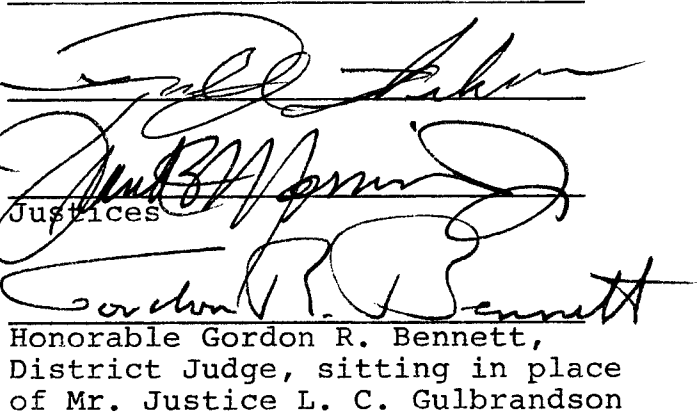 Justices
Gordon R. Bennett
Honorable Gordon R. Bennett,
District Judge, sitting in place
of Mr. Justice L. C. Gulbrandson